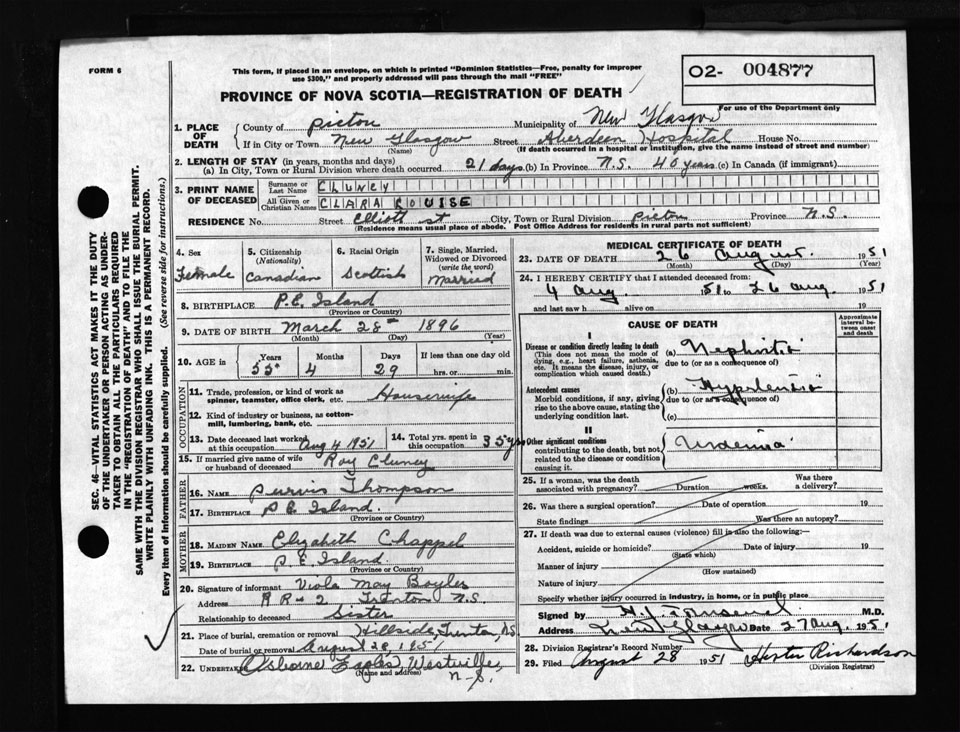 FORM 6
This form, if placed in an envelope, on which is printed "Dominion Statistics—Free, penalty for improper
use $300," and properly addressed will pass through the mail "FREE"
O2- 004877
For use of the Department only
PROVINCE OF NOVA SCOTIA—REGISTRATION OF DEATH
1. PLACE OF DEATH
County of Pictou Municipality of New Glasgow
If in City or Town New Glasgow Street Aberdeen Hospital House No.
(Name) (If death occurred in a hospital or institution, give the name instead of street and number)
2. LENGTH OF STAY (in years, months and days)
(a) In City, Town or Rural Division where death occurred 21 days (b) In Province N.S. 40 years (c) In Canada (if immigrant)
3. PRINT NAME OF DECEASED
Surname or Last Name CLUNEY
All Given or Christian Names CLARA LOUISE
RESIDENCE No. Street Elliott St City, Town or Rural Division Pictou Province N.S.
(Residence means usual place of abode. Post Office Address for residents in rural parts not sufficient)
4. Sex Female
5. Citizenship (Nationality) Canadian
6. Racial Origin Scottish
7. Single, Married, Widowed or Divorced (write the word) Married
8. BIRTHPLACE P.E. Island
(Province or Country)
9. DATE OF BIRTH March 28th 1896
(Month) (Day) (Year)
10. AGE in Years Months Days If less than one day old
55 4 29 hrs. or min.
OCCUPATION
11. Trade, profession, or kind of work as spinner, teamster, office clerk, etc. Housewife
12. Kind of industry or business, as cotton-mill, lumbering, bank, etc.
13. Date deceased last worked at this occupation Aug 4 1951
14. Total yrs. spent in this occupation 35 yrs
15. If married give name of wife or husband of deceased Roy Cluney
FATHER
16. NAME Purvis Thompson
17. BIRTHPLACE P E Island.
(Province or Country)
MOTHER
18. MAIDEN NAME Elizabeth Chappel
19. BIRTHPLACE P. E. Island
(Province or Country)
20. Signature of informant Viola May Boyles
Address R R-2 Trenton N.S.
Relationship to deceased Sister
21. Place of burial, cremation or removal Hillside, Trenton, NS
Date of burial or removal August 28, 1951
22. UNDERTAKER Osborne Eagles, Westville,
(Name and address) N-S.
MEDICAL CERTIFICATE OF DEATH
23. DATE OF DEATH 26 August 1951
(Month) (Day) (Year)
24. I HEREBY CERTIFY that I attended deceased from:
4 Aug. 1951 to 26 Aug. 1951
and last saw h alive on 19
CAUSE OF DEATH
Approximate interval between onset and death
I
Disease or condition directly leading to death
(This does not mean the mode of dying, e.g., heart failure, asthenia, etc. It means the disease, injury, or complication which caused death.)
(a) Nephritis
due to (or as a consequence of)
Antecedent causes
Morbid conditions, if any, giving rise to the above cause, stating the underlying condition last.
(b) Hypertension
due to (or as a consequence of)
(c)
II
Other significant conditions contributing to the death, but not related to the disease or condition causing it.
25. If a woman, was the death associated with pregnancy? Duration weeks. Was there a delivery?
26. Was there a surgical operation? Date of operation 19
State findings Was there an autopsy?
27. If death was due to external causes (violence) fill in also the following:—
Accident, suicide or homicide? Date of injury 19
(State which)
Manner of injury
(How sustained)
Nature of injury
Specify whether injury occurred in industry, in home, or in public place
Signed by M.D.
Address New Glasgow Date 27 Aug. 1951
28. Division Registrar's Record Number
29. Filed August 28 1951 Hester Richardson
(Division Registrar)
SEC. 46—VITAL STATISTICS ACT MAKES IT THE DUTY
OF THE UNDERTAKER OR PERSON ACTING AS UNDER-
TAKER TO OBTAIN ALL THE PARTICULARS REQUIRED
IN THE "REGISTRATION OF DEATH" AND TO FILE THE
SAME WITH THE DIVISION REGISTRAR WHO SHALL ISSUE THE BURIAL PERMIT.
WRITE PLAINLY WITH UNFADING INK. THIS IS A PERMANENT RECORD.
Every item of Information should be carefully supplied. (See reverse side for instructions.)